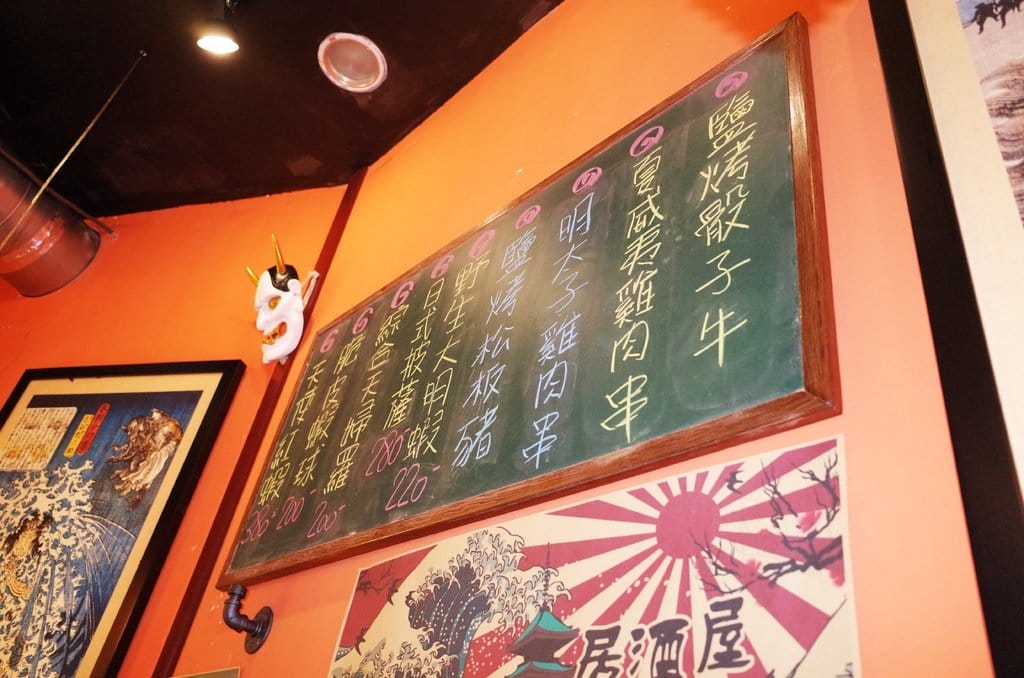 鹽烤骰子牛
夏威夷雞肉串
明太子雞肉串
鹽烤松板豬
野生大明蝦 220-
日式披薩 280-
綜合天婦羅 200-
脆皮蝦球 200-
天使紅蝦
居酒屋